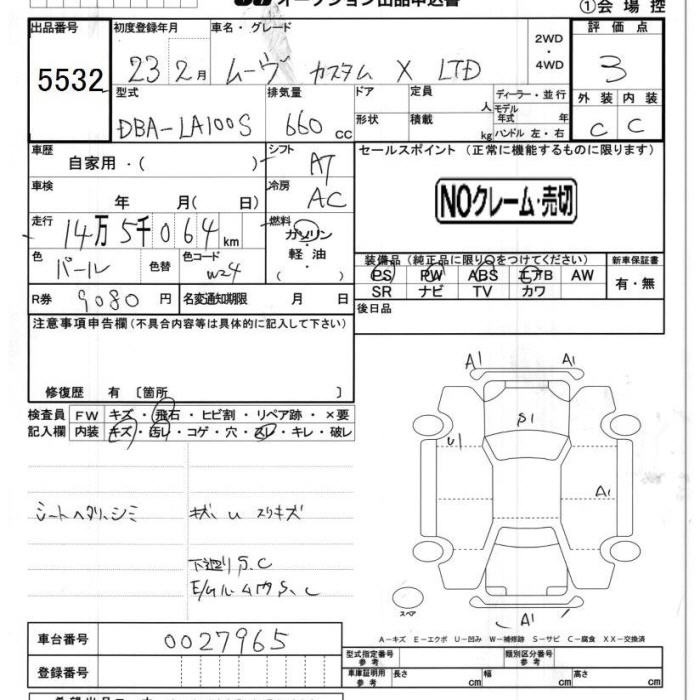 オークション出品申込書
①会場控
出品番号 初度登録年月 車名・グレード 2WD・4WD 評価点
5532 23 2月 ムーヴ カスタム X LTD 3
型式 排気量 ドア 定員 人 ディーラー・並行 外装 内装
DBA-LA100S 660 cc 形状 積載 kg モデル年式 年 ハンドル 左・右 C C
車歴 自家用・( ) シフト AT セールスポイント (正常に機能するものに限ります)
車検 年 月( 日) 冷房 AC NOクレーム・売切
走行 14万5千064km 燃料 ガソリン・軽油・( )
装備品(純正品に限り○をつけてください) 新車保証書
色 パール 色替 色コード W24 PS PW ABS エアB AW 有・無
SR ナビ TV カワ
R券 9080円 名変通知期限 月 日 後日品
注意事項申告欄(不具合内容等は具体的に記入して下さい)
修復歴 有 〔箇所 〕
検査員 FW キズ・飛石・ヒビ割・リペア跡・×要
記入欄 内装 キズ・汚レ・コゲ・穴・スレ・キレ・破レ
A1 A1
S1
U1
A1
シートヘタリ、シミ キズ、U スリキズ
下廻りS、C
E/ルーム内S、C
スペア
A1
A-キズ E-エクボ U-凹み W-補修跡 S-サビ C-腐食 XX-交換済
車台番号 0027965
型式指定番号 参考 類別区分番号 参考
登録番号 車庫証明用 参考 長さ cm 幅 cm 高さ cm